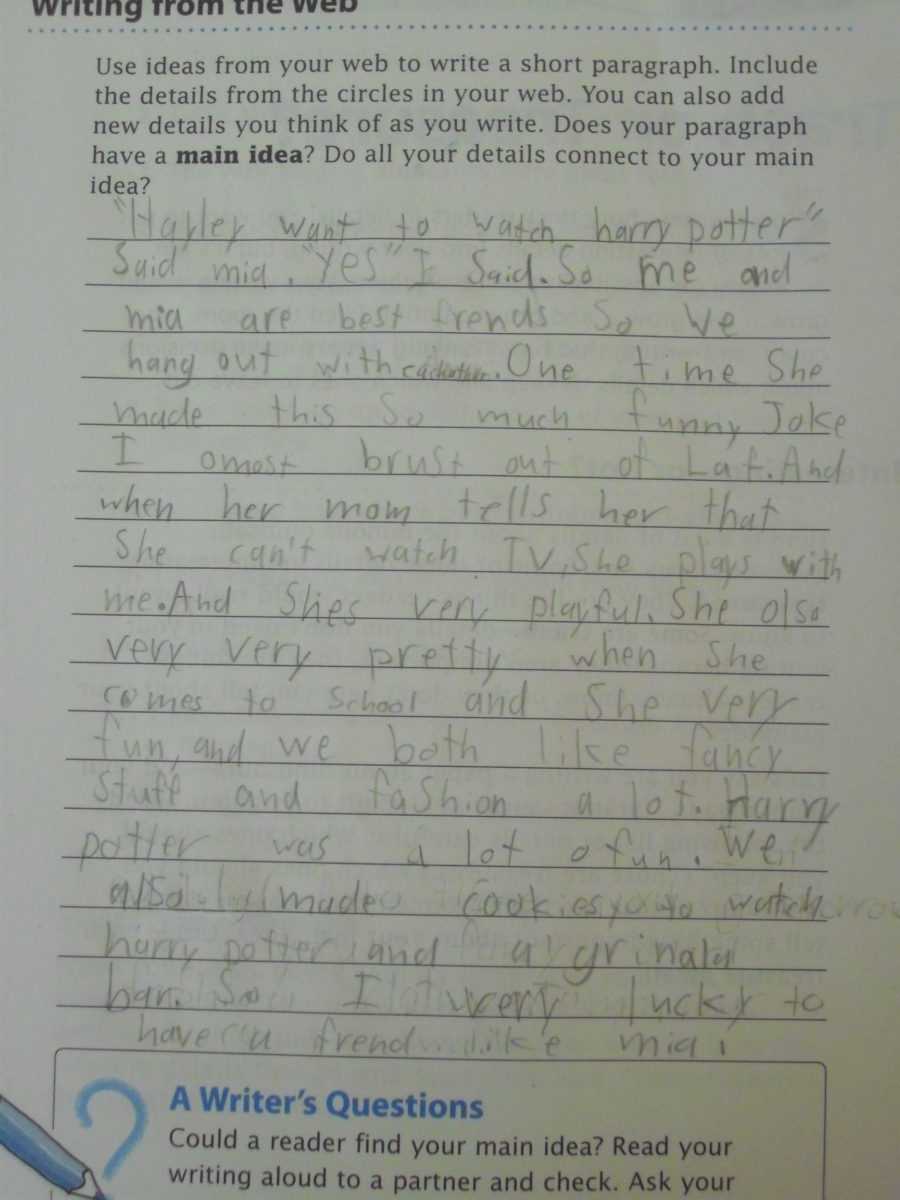 Writing from the Web
Use ideas from your web to write a short paragraph. Include
the details from the circles in your web. You can also add
new details you think of as you write. Does your paragraph
have a main idea? Do all your details connect to your main
idea?
"Hayley want to watch harry potter"
Said mia. "Yes" I Said. So me and
mia are best frends So We
hang out with eachother. One time She
made this So much funny Joke
I omost brust out of Laf. And
when her mom tells her that
She can't watch TV, She plays with
me. And Shes very playful. She olso
very very pretty when She
comes to School and She very
fun, and we both like fancy
Stuff and faShion a lot. Harry
potter was a lot o fun. We
also made cookies to watch
harry potter and a grinala
bar. So I very lucky to
have a frend like mia.
A Writer's Questions
Could a reader find your main idea? Read your
writing aloud to a partner and check. Ask your